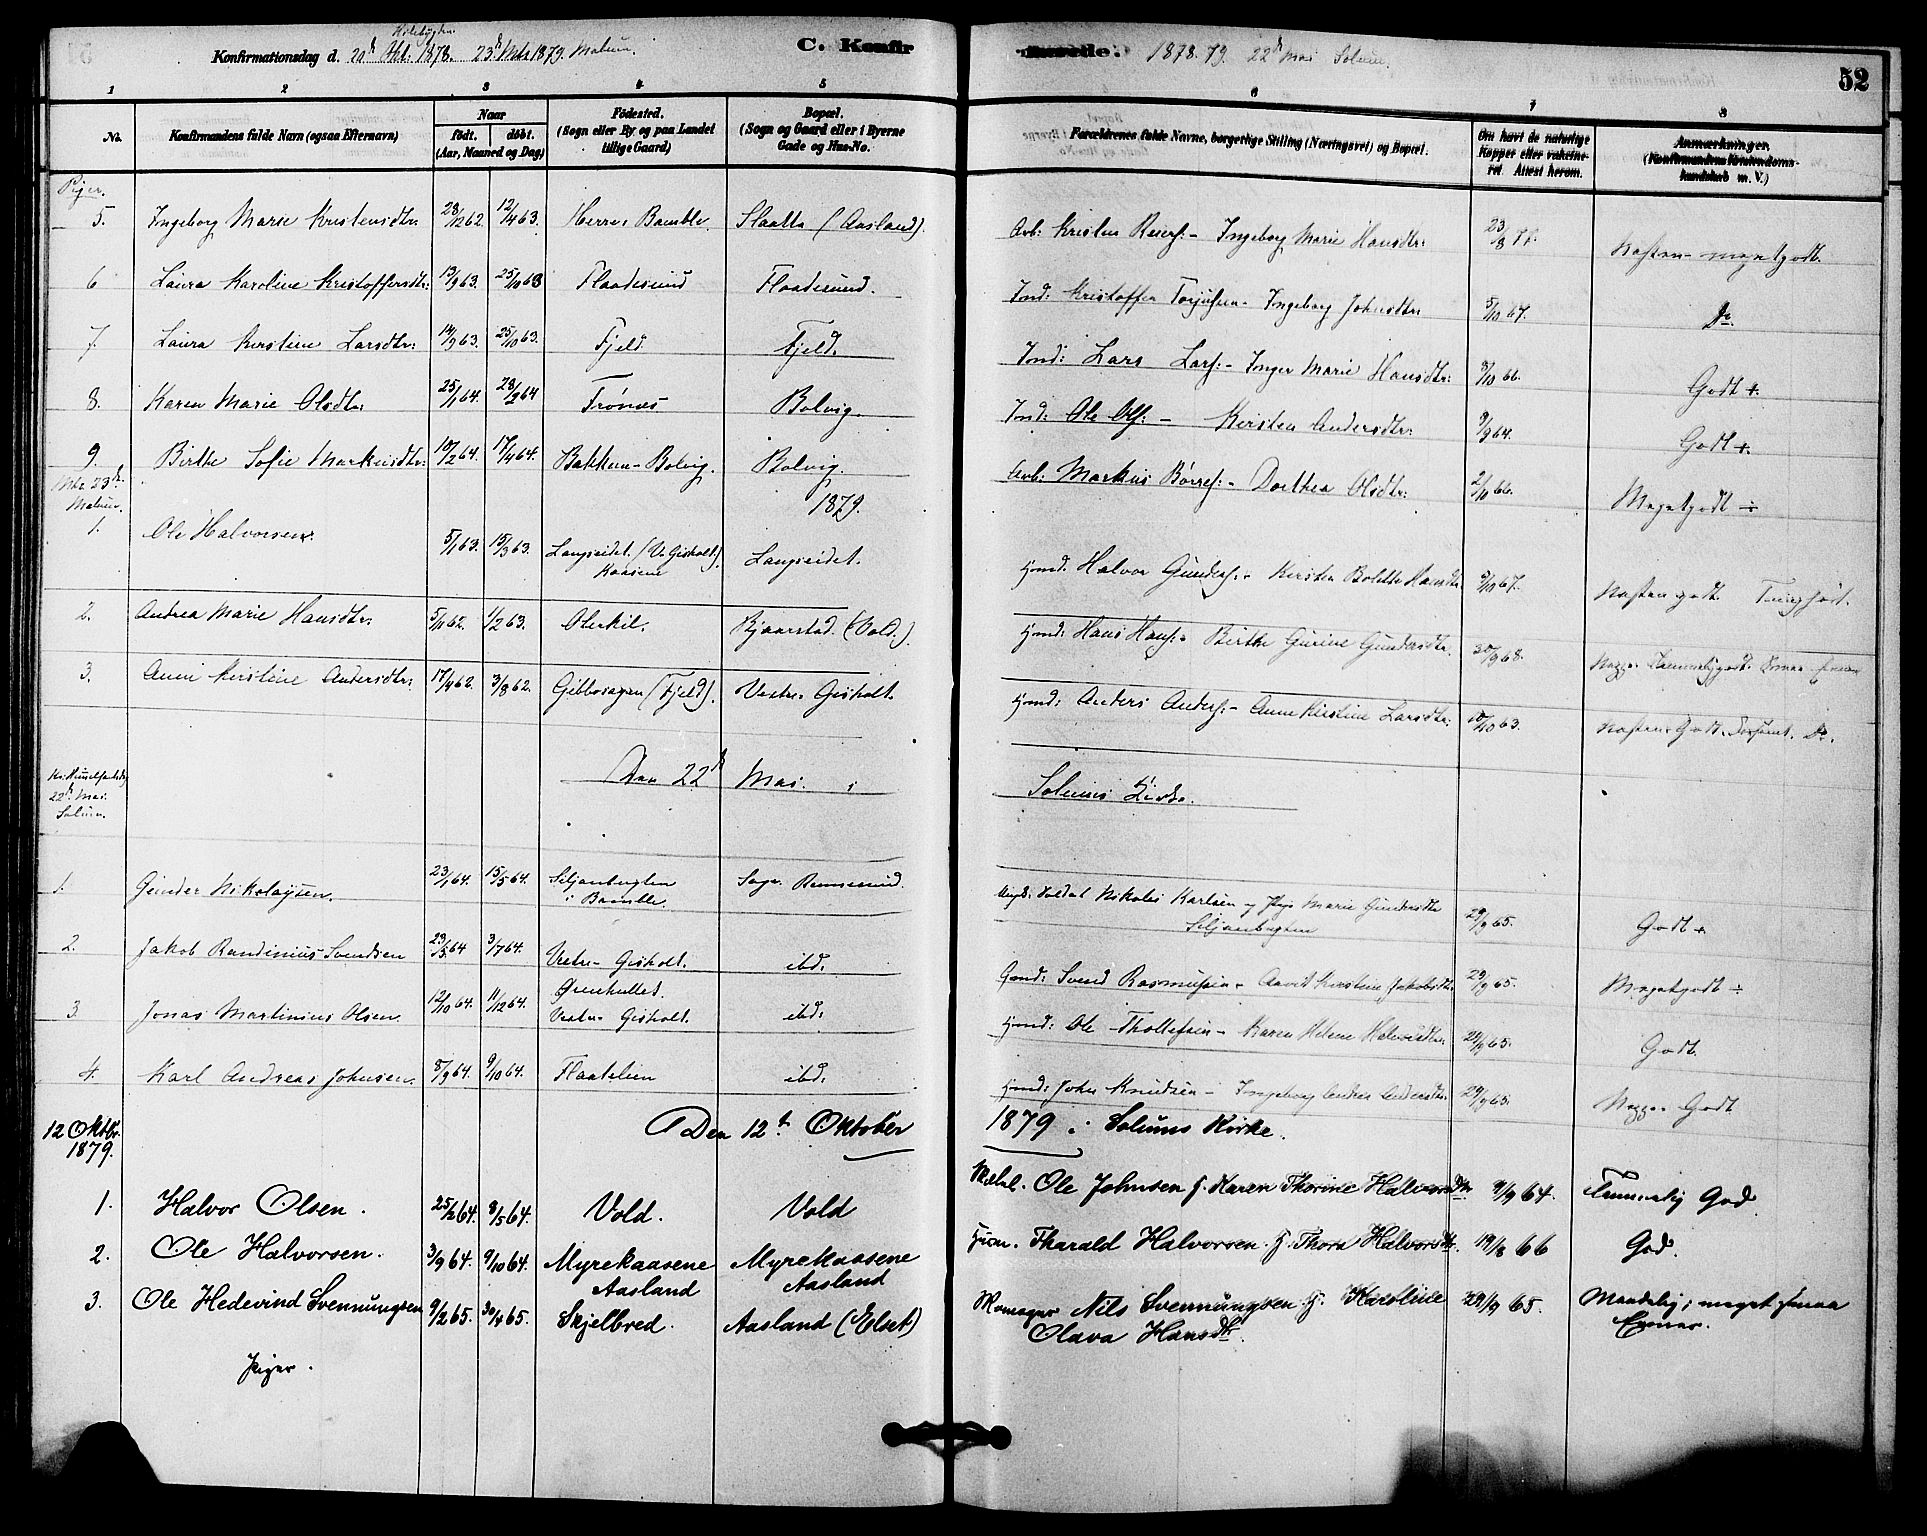 Konfirmationsdag d. 20de Okt. 1878. 23de Mts 1879. Melum.
C. Konfirmerede. 1878-79. 22de Mai Solum.
52
1 2 3 4 5 6 7 8
No. Konfirmandens fulde Navn (ogsaa Efternavn) Naar født. døbt. (Aar, Maaned og Dag) Fødested. (Sogn eller By og paa Landet tillige Gaard) Bopæl. (Sogn og Gaard eller i Byerne Gade og Hus-No. Forældrenes fulde Navne, borgerlige Stilling (Næringsvei) og Bopæl. Om havt de naturlige Kopper eller vaksineret. Attest herom. Anmærkninger. (Konfirmandens Kristendomskundskab m. V.)
Piger.
5. Ingeborg Marie Kristensdtr. 28/12 62. 12/4 63. Herre, Bamble. Slaatta (Aasland). Arb: Kristen - Ingeborg Marie Hansdtr: 23/8 Næsten - megetgodt.
6 Laura Karoline Kristoffersdtr: 13/9 63. 25/10 63 Flaadesund Flaadesund. Ind: Kristoffer Torjusen - Ingeborg Johnsdtr 5/10 67. Do.
7. Laura Kirstine Larsdtr: 14/9 63. 25/10 63. Fjeld Fjeld. Ind: Lars Lars: - Inger Marie Hansdtr: 8/10 66. Godt +
8. Karen Marie Olsdtr: 25/1 64. 28/2 64 Trønes Bolvig. Ind: Ole Ols: - Kirsten Andersdtr: 9/9 64. Godt +.
9. Birthe Sofie Markusdtr: 10/2 64. 17/4 64. Bakken - Bolvig. Bolvig. Arb: Markus Børres: - Dorthea Olsdtr: 2/10 66. Megetgodt ÷
Mts 23de Melum. 1879.
1. Ole Halvorsen. 5/1 63. 15/3 63. Langseidet. (V. Gisholt). Kaasene Langseidet. Gmd: Halvor Gunders: - Kirsten Bolette Hansdtr 8/10 67. Næsten godt.
2. Andrea Marie Hansdtr. 5/11 62. 1/2 63. Olerkil. Kjærstad. (Vold.) Gmd: Hans Hans: - Birthe Gurine Gundersdtr. 30/9 68.
3. Anne Kirstine Andersdtr: 17/4 62. 3/8 62. Gibbosagen (Fjeld). Vestre Gisholt. Gmd: Anders Anders: - Anne Kirstine Larsdtr: 10/10 63. Næsten Godt. Do.
22de Mai. Solum. Den 22de Mai i Solums Kirke.
1. Gunder Nikolaysen. 23/1 64. 15/5 64. Siljanbugten i Bamble. Sage. Rønnesund. Soldat Nikolai Karlsen og Pige Marie Gundersdtr Siljanbugten 29/9 65. Godt +
2. Jakob Randinius Svendsen 29/5 64 3/7 64. Vestre Gisholt. ibd. Gmd: Svend Rasmusen - Kirstine Jakobsdtr. 29/9 65. Megetgodt ÷
3. Jonas Martinius Olsen. 12/10 64. 11/12 64. Vestre Gisholt. ibd: Gmd: Ole Thollefsen - Karen Helene Halvorsdtr. 29/9 65. Godt.
4. Karl Andreas Johnsen. 8/9 64. 9/10 64. Flaatelien ibd: Gmd: John Knudsen - Ingeborg Andrea Andersdtr. 29/9 65. Megget Godt
12 Oktbr. 1879. Den 12te Oktober 1879 i Solums Kirke.
1. Halvor Olsen. 25/2 64. 8/5 64. Vold. Vold Ole Johnsen H. Maren Thorine Halvorsdtr 9/9 64. Temmelig God.
2. Ole Halvorsen. 3/9 64. 9/10 64. Myrekaasene Aasland Myrekaasene Aasland Tharald Halvorsen. H. Thora Halvorsdtr. 19/8 66 God.
3. Ole Hedevind Svennungsen 9/2 65. 30/4 65. Skjelbred. Aasland (Elset) Skomager Nils Svennungsen. H. Karoline Olava Hansdtr. 29/9 65. Maadelig; meget smaa Evner.
Piger.